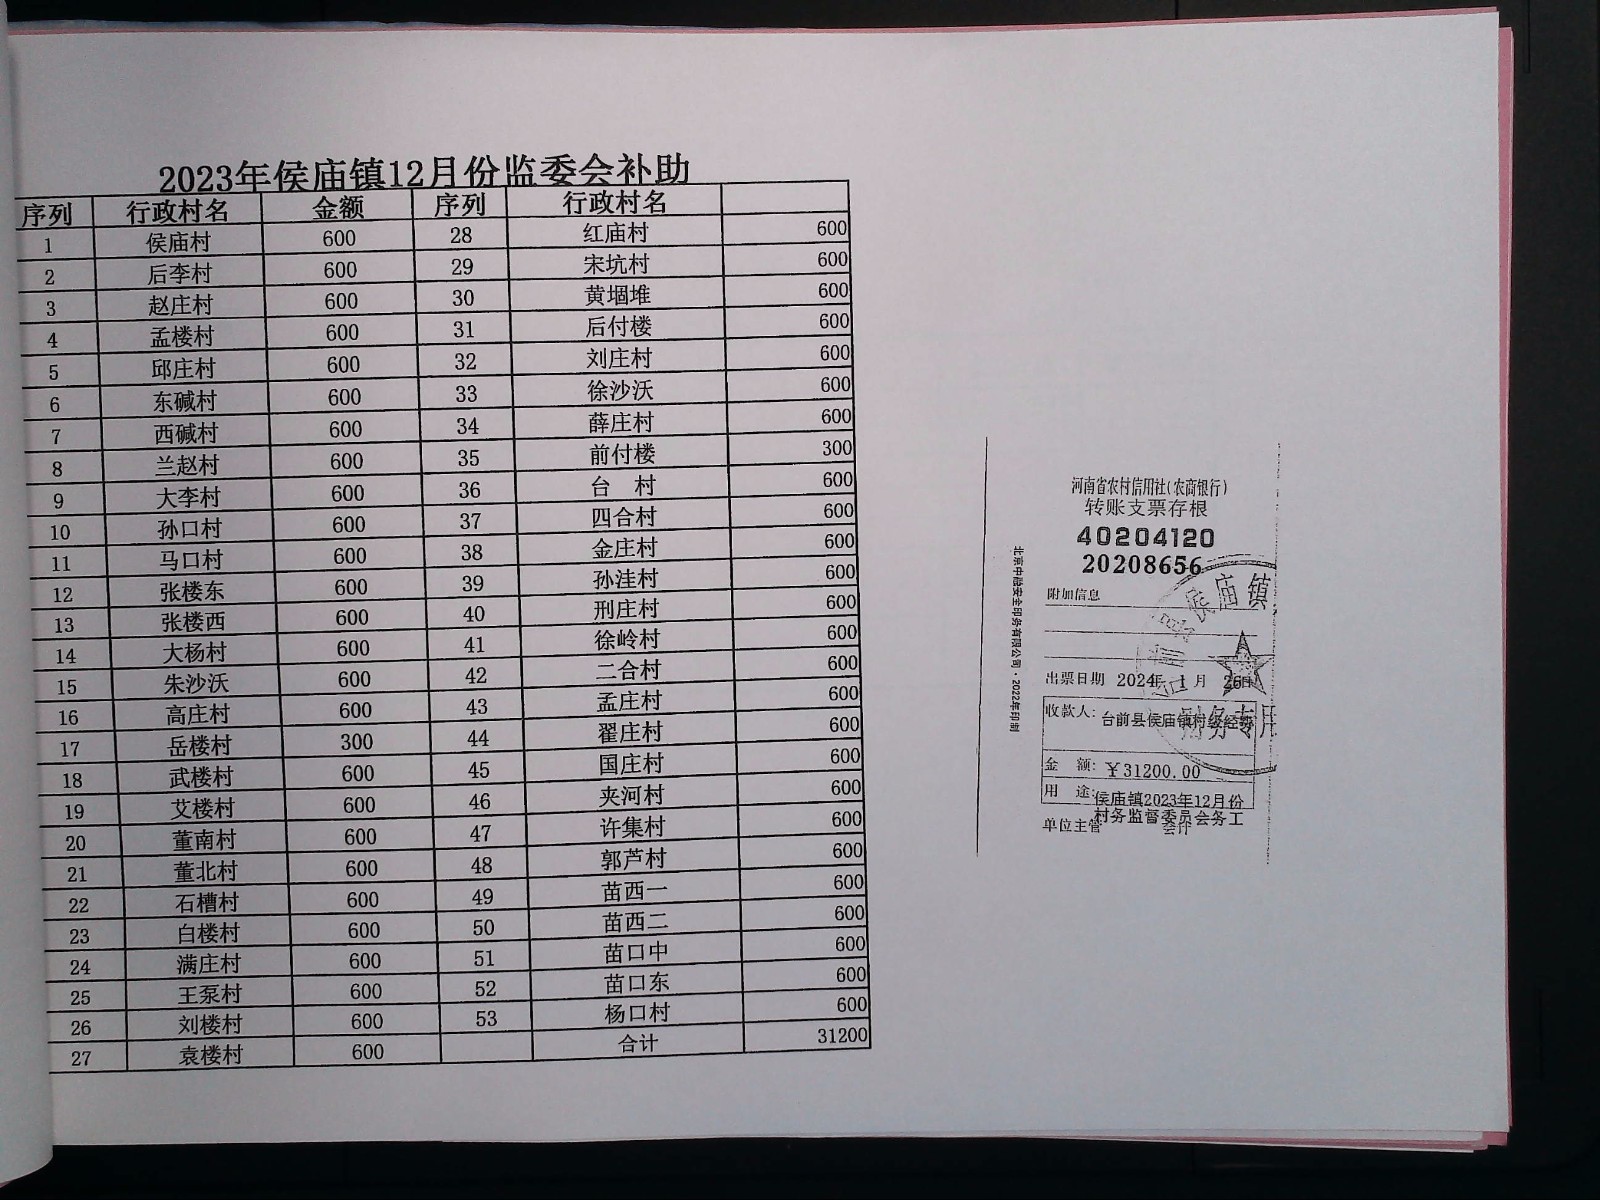 2023年侯庙镇12月份监委会补助
序列 行政村名 金额 序列 行政村名
1 侯庙村 600 28 红庙村 600
2 后李村 600 29 宋坑村 600
3 赵庄村 600 30 黄堌堆 600
4 孟楼村 600 31 后付楼 600
5 邱庄村 600 32 刘庄村 600
6 东碱村 600 33 徐沙沃 600
7 西碱村 600 34 薛庄村 600
8 兰赵村 600 35 前付楼 300
9 大李村 600 36 台 村 600
10 孙口村 600 37 四合村 600
11 马口村 600 38 金庄村 600
12 张楼东 600 39 孙洼村 600
13 张楼西 600 40 刑庄村 600
14 大杨村 600 41 徐岭村 600
15 朱沙沃 600 42 二合村 600
16 高庄村 600 43 孟庄村 600
17 岳楼村 300 44 翟庄村 600
18 武楼村 600 45 国庄村 600
19 艾楼村 600 46 夹河村 600
20 董南村 600 47 许集村 600
21 董北村 600 48 郭芦村 600
22 石槽村 600 49 苗西一 600
23 白楼村 600 50 苗西二 600
24 满庄村 600 51 苗口中 600
25 王泵村 600 52 苗口东 600
26 刘楼村 600 53 杨口村 600
27 袁楼村 600 合计 31200
河南省农村信用社(农商银行)
转账支票存根
40204120
20208656
附加信息
出票日期 2024年 1月 26日
收款人: 台前县侯庙镇村级经
金 额: ¥31200.00
用 途: 侯庙镇2023年12月份
村务监督委员会务工
单位主管 会计
北京中融安全印务有限公司·2022年印制
侯庙镇
财务专用